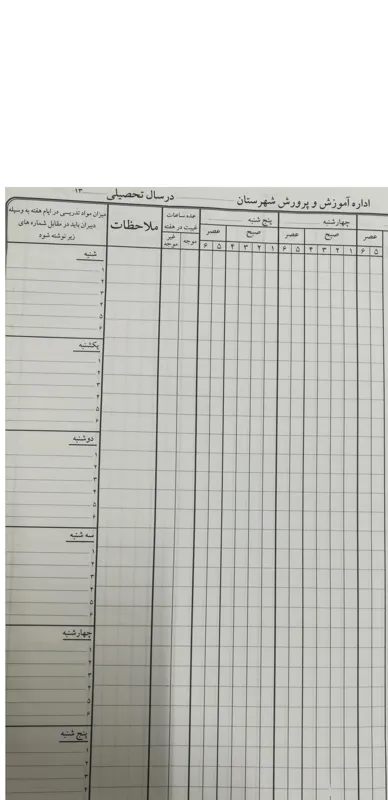 اداره آموزش و پرورش شهرستان در سال تحصیلی ۱۳
چهارشنبه پنج شنبه
عصر صبح عصر صبح عصر
۵ ۶ ۱ ۲ ۳ ۴ ۵ ۶ ۱ ۲ ۳ ۴ ۵ ۶
عده ساعات
غیبت در هفته
موجه غیر موجه
ملاحظات
میزان مواد تدریسی در ایام هفته به وسیله
دبیران باید در مقابل شماره های
زیر نوشته شود
شنبه
۱
۲
۳
۴
۵
۶
یکشنبه
۱
۲
۳
۴
۵
۶
دوشنبه
۱
۲
۳
۴
۵
۶
سه شنبه
۱
۲
۳
۴
۵
۶
چهارشنبه
۱
۲
۳
۴
۵
۶
پنج شنبه
۱
۲
۳
۴